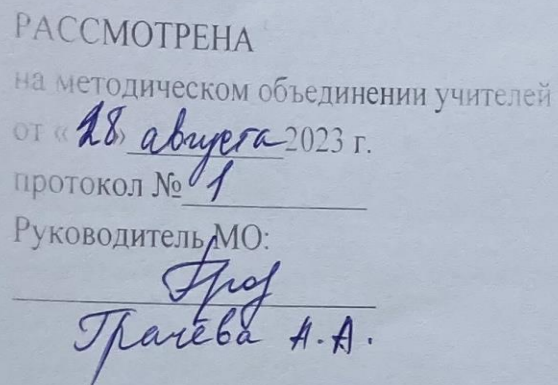 РАССМОТРЕНА
на методическом объединении учителей
от «28» августа 2023 г.
протокол № 1
Руководитель МО:
Грачёва А.А.